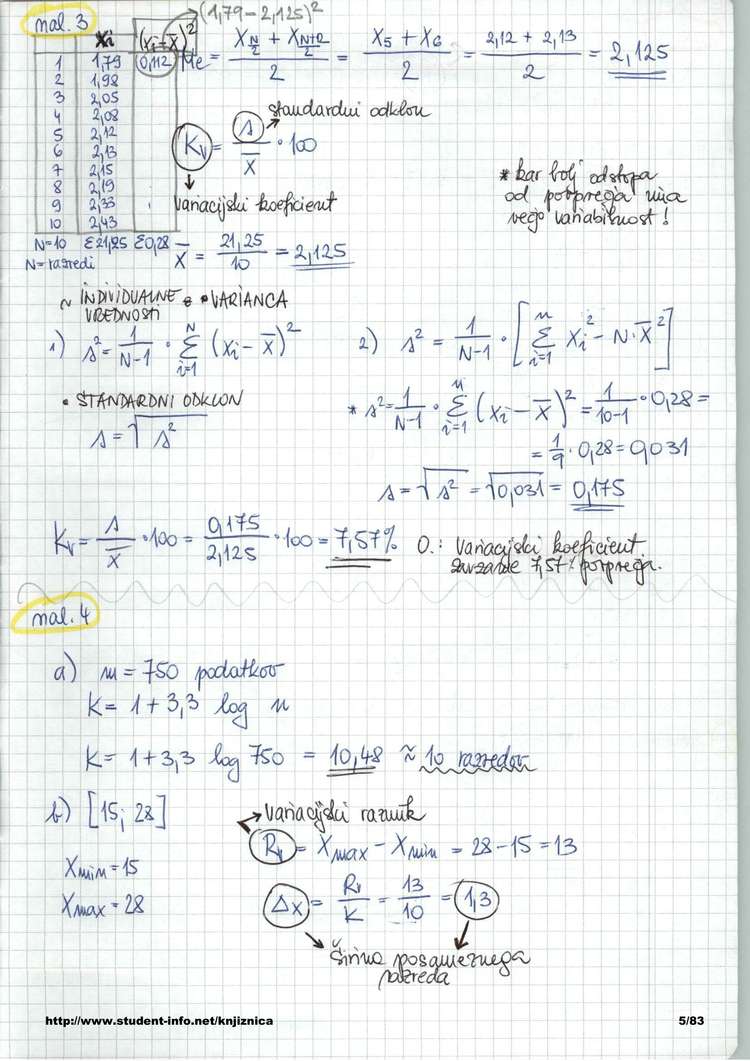 nal. 3
(1,79 - 2,125)²
xi (xi - x̄)²
1 1,79 0,112
2 1,98
3 2,05
4 2,08
5 2,12
6 2,13
7 2,15
8 2,19
9 2,33
10 2,43
N=10 Σ21,25 Σ0,28
N= razredi
Me = (X_{N/2} + X_{(N+2)/2}) / 2 = (X5 + X6) / 2 = (2,12 + 2,13) / 2 = 2,125
standardni odklon
Kv = s / x̄ · 100
variacijski koeficient
* kar bolj odstopa
od povprečja ima
večjo variabilnost!
x̄ = 21,25 / 10 = 2,125
~ INDIVIDUALNE VREDNOSTI
• VARIANCA
1) s² = 1/(N-1) · Σ_{i=1}^{N} (xi - x̄)²
2) s² = 1/(N-1) · [Σ_{i=1}^{n} xi² - N·x̄²]
• STANDARDNI ODKLON
s = √s²
* s² = 1/(N-1) · Σ_{i=1}^{n} (xi - x̄)² = 1/(10-1) · 0,28 =
= 1/9 · 0,28 = 0,031
s = √s² = √0,031 = 0,175
Kv = s / x̄ · 100 = 0,175 / 2,125 · 100 = 7,57%
O.: Variacijski koeficient
7,57%
nal. 4
a) n = 750 podatkov
K = 1 + 3,3 log n
K = 1 + 3,3 log 750 = 10,48 ≈ 10 razredov
b) [15; 28]
Xmin = 15
Xmax = 28
variacijski razmik
Rv = Xmax - Xmin = 28 - 15 = 13
Δx = Rv / K = 13 / 10 = 1,3
širina posameznega
razreda
http://www.student-info.net/knjiznica 5/83